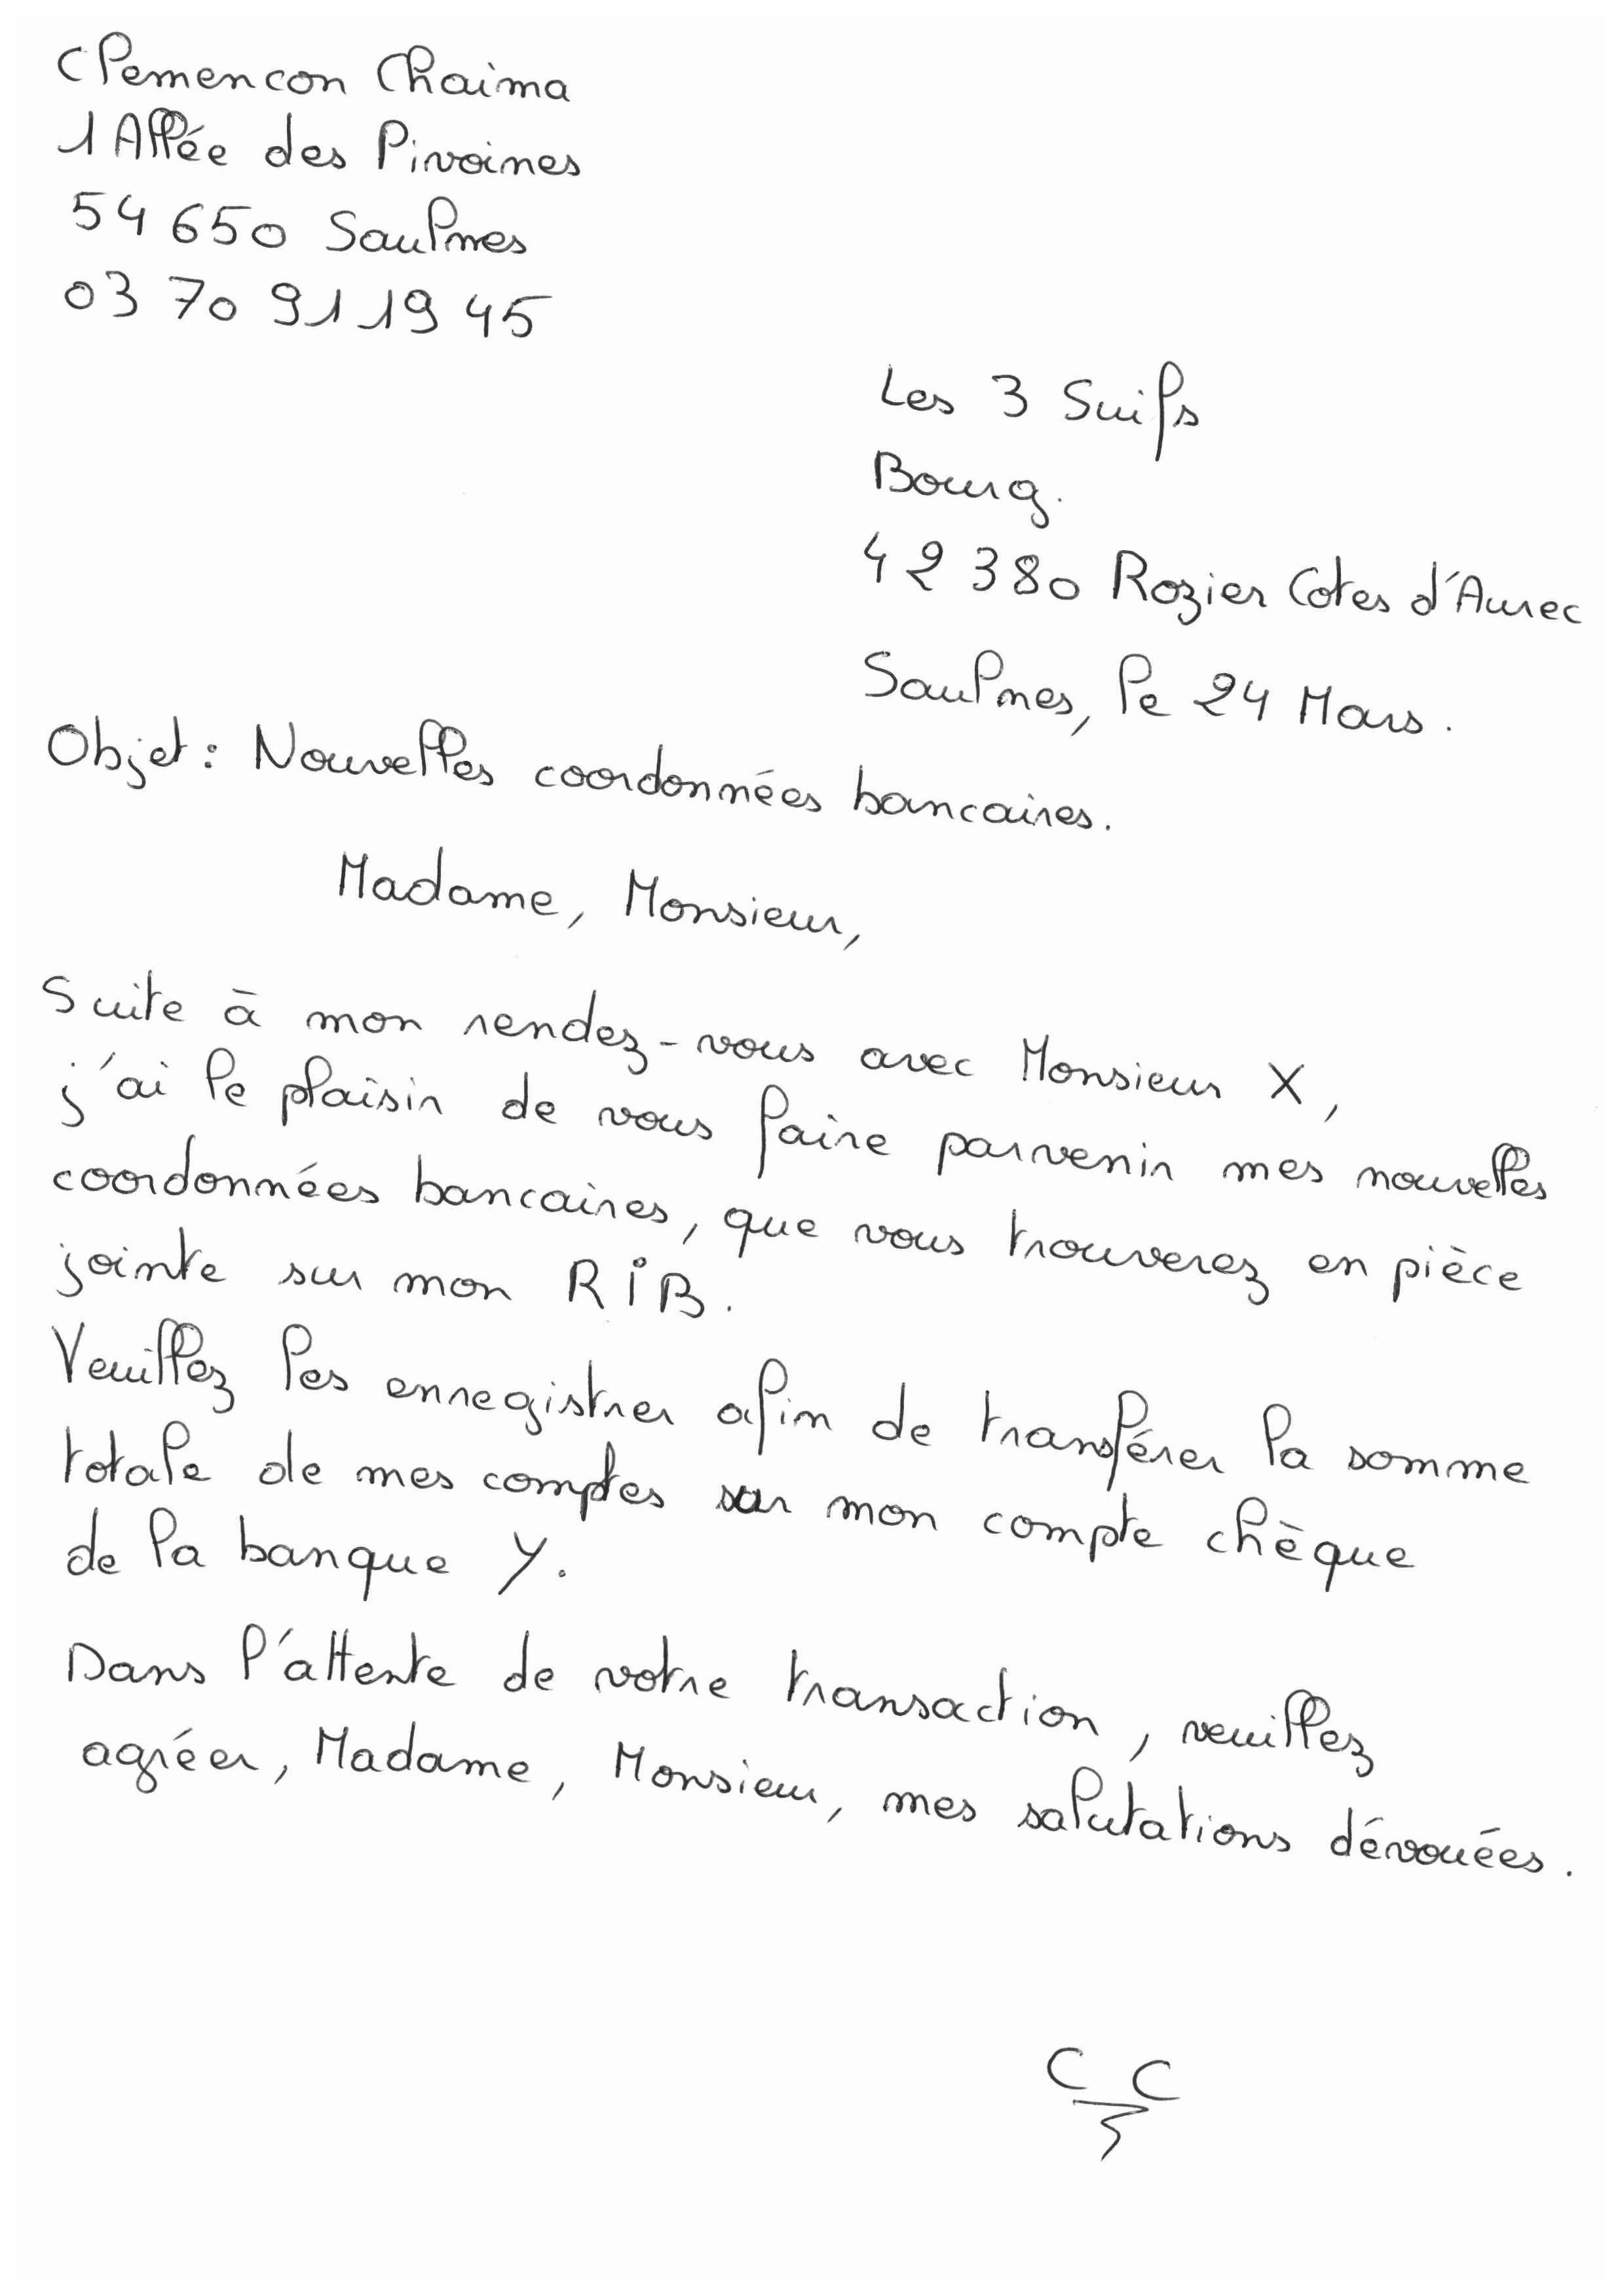 Clemencon Chaima
1 Allée des Pivoines
54 650 Saulnes
03 70 91 19 45
Les 3 Suifs
Bourg.
42 380 Rozier Cotes d'Aurec
Saulnes, le 24 Mars.
Objet : Nouvelles coordonnées bancaires.
Madame, Monsieur,
Suite à mon rendez-vous avec Monsieur X,
j'ai le plaisir de vous faire parvenir mes nouvelles
coordonnées bancaires, que vous trouverez en pièce
jointe sur mon RIB.
Veuillez les enregistrer afin de transférer la somme
totale de mes comptes sur mon compte chèque
de la banque Y.
Dans l'attente de votre transaction, veuillez
agréer, Madame, Monsieur, mes salutations dévouées.
C C